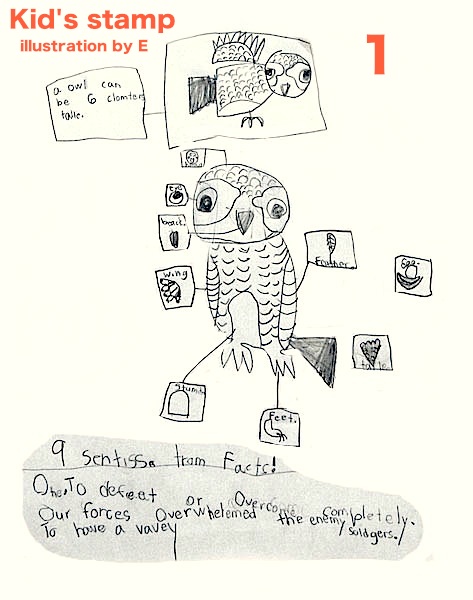 Kid's stamp
illustration by E
1
a owl can
be 6 clomter
talle.
Eye
beack
wing
Feather.
Egg.
Feet.
9 sentiss from Facts!
One. To defeet or Overcome completely.
Our forces Overwhelemed the enemy soldgers.
To have a vavey